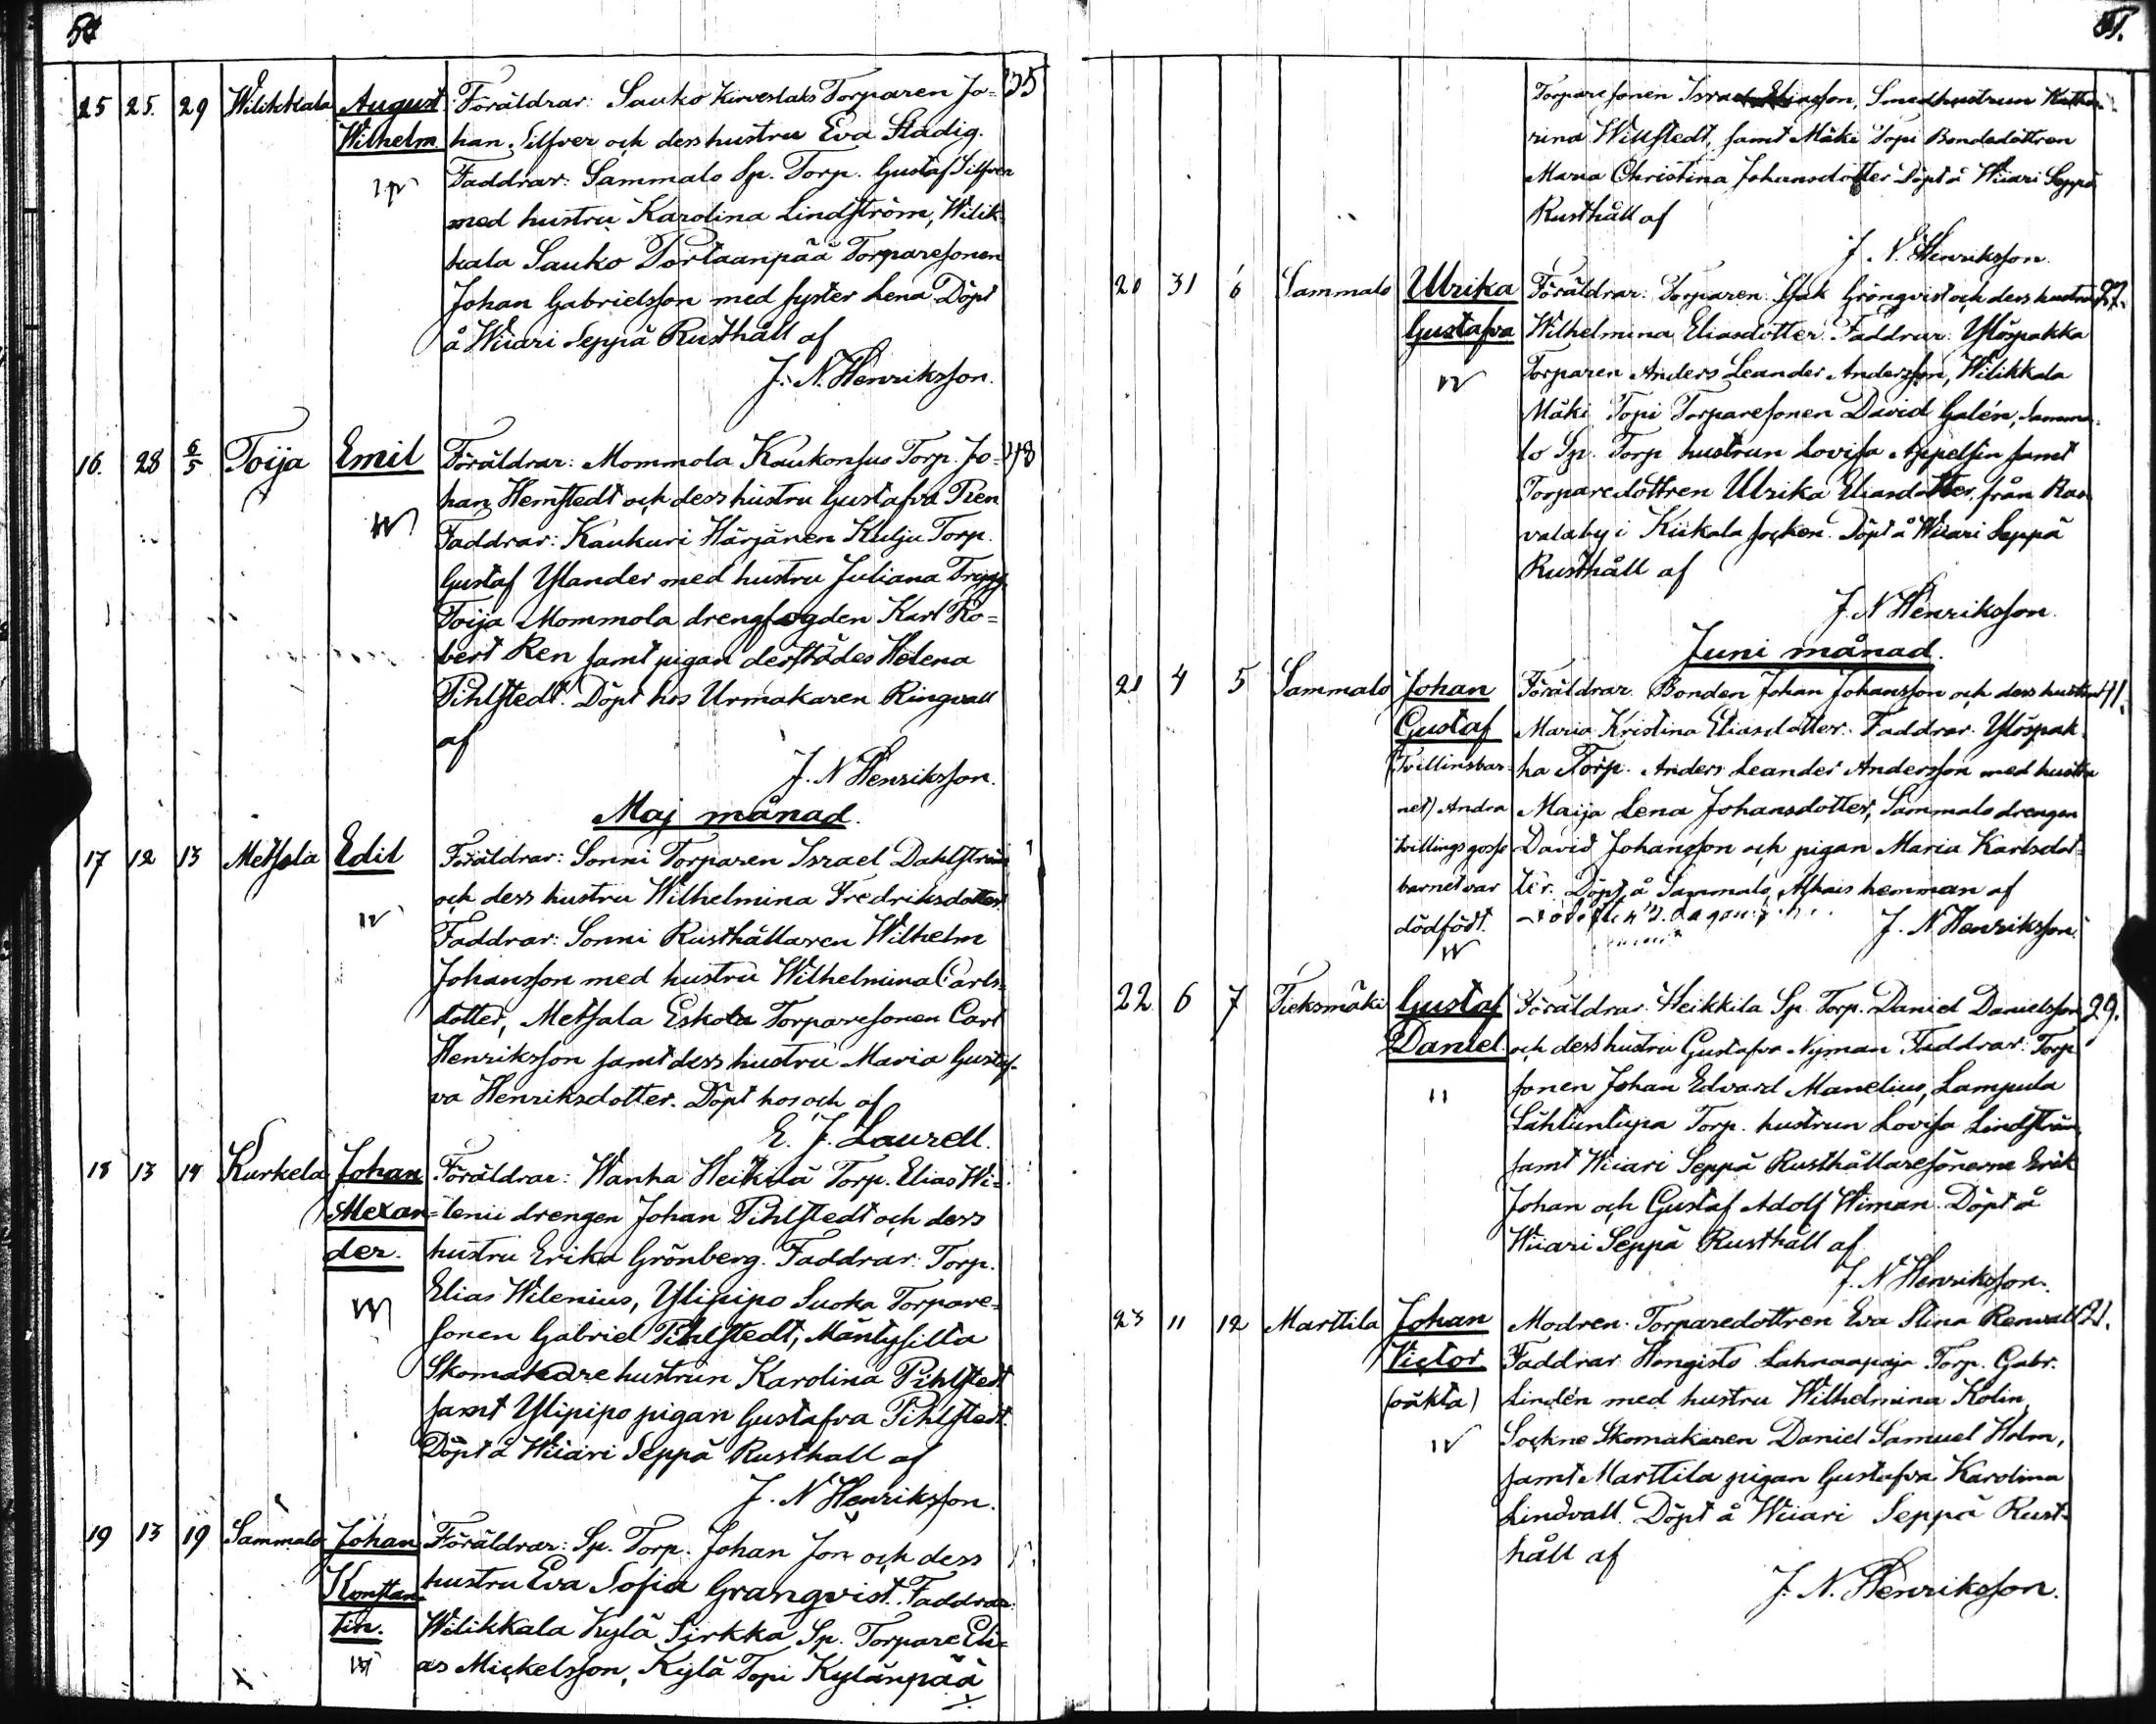 50
25 25. 29 Wilikkala August Föräldrar: Sauko Kirveslaks Torparen Jo= 35
Wilhelm han Silfver och dess hustru Eva Stadig.
Faddrar: Sammalo Sp. Torp. Gustaf Silfver
med hustru Karolina Lindström, Wilik-
kala Sauko Torpparesonen
Johan Gabrielsson med syster Lena Döpt
å Wiiari Seppä Rusthåll af
J. N. Henriksson.
16. 28 6/5 Toija Emil Föräldrar: Mommola Kaukonsuo Torp. Jo= 48
han Hemstedt och dess hustru Gustafva Ren
Faddrar: Kaukuri Härjänen Kulju Torp.
Gustaf Ylander med hustru Juliana Trygg,
Toija Mommola drengfogden Karl Ro=
bert Ren samt pigan derstädes Helena
Pihlstedt. Döpt hos Urmakaren Ringvall
af
J. N Henriksson.
Maj månad.
17 12 13 Metsola Edit Föräldrar: Sonni Torparen Israel Dahlström
och dess hustru Wilhelmina Fredriksdotter.
Faddrar: Sonni Rusthållaren Wilhelm
Johansson med hustru Wilhelmina Carls-
dotter, Metsala Eskola Torparesonen Carl
Henriksson samt dess hustru Maria Gustaf-
va Henriksdotter. Döpt hos och af
E. J. Laurell.
18 13 14 Kurkela Johan Föräldrar: Wanha Heikkilä Torp. Elias Wi=
Alexan= lenii drengen Johan Pihlstedt och dess
der. hustru Erika Grönberg. Faddrar: Torp.
Elias Wilenius, Ylipipo Suoka Torpare-
sonen Gabriel Pihlstedt, Mäntysilta
Skomakare hustrun Karolina Pihlstedt
samt Ylipipo pigan Gustafva Pihlstedt.
Döpt å Wiiari Seppä Rusthåll af
J. N Henriksson.
19 13 19 Sammalo Johan Föräldrar: Sp. Torp. Johan Jon och dess
Konstan- hustru Eva Sofia Granqvist. Faddrar:
tin. Wilikkala Kylä Sirkka Sp. Torpare Eli=
as Mickelsson, Kylä Topi Kylänpää
51.
Torpare sonen Israel Eliasson, Smedhustrun Katha-
rina Willstedt, samt Mäki Topi Bondedottren
Maria Christina Johansdotter Döpt å Wiiari Seppä
Rusthåll af
J. N. Henriksson.
20 31 6 Sammalo Ulrika Föräldrar: Torparen Isak Grönqvist och dess hustru 27.
Gustafva Wilhelmina Eliasdotter. Faddrar: Ylöspakka
Torparen Anders Leander Andersson, Wilikkala
Mäki Topi Torparesonen David Galén, Samma-
lo Sp. Torp hustrun Lovisa Appelsin samt
Torparedottren Ulrika Eliasdotter, från Ra
valaby i Kiikala socken. Döpt å Wiiari Seppä
Rusthåll af
J. N Henriksson.
Juni månad.
21 4 5 Sammalo Johan Föräldrar. Bonden Johan Johansson och dess hustru 41.
Gustaf Maria Kristina Eliasdotter. Faddrar Ylöspak-
(Tvillinsbar- ka Torp. Anders Leander Andersson med hustru
net) Andra Maija Lena Johansdotter, Sammalo drengen
tvillings gosse David Johansson och pigan Maria Karlsdot-
barnet var ter. Döpt å Sammalo hemman af
dödfödt. J. N Henriksson.
22 6 7 Tieksmäki Gustaf Föräldrar. Heikkila Sp. Torp. Daniel Danielsson 29.
Daniel. och dess hustru Gustafva Nyman Faddrar: Torp
sonen Johan Edvard Manelius, Lampula
Lähtuntupa Torp. hustrun Lovisa Lindström,
samt Wiiari Seppä Rusthållaresönerne Erik
Johan och Gustaf Adolf Wiman. Döpt å
Wiiari Seppä Rusthåll af
J. N Henriksson.
23 11 12 Marttila Johan Modren. Torparedottren Eva Stina Renvall 21.
Victor Faddrar Hongisto Lahnaapaja Torp. Gabr.
(oäkta) Lindén med hustru Wilhelmina Kolin
Sockne Skomakaren Daniel Samuel Holm,
samt Marttila pigan Gustafva Karolina
Lindvall. Döpt å Wiiari Seppä Rust-
håll af
J. N. Henriksson.